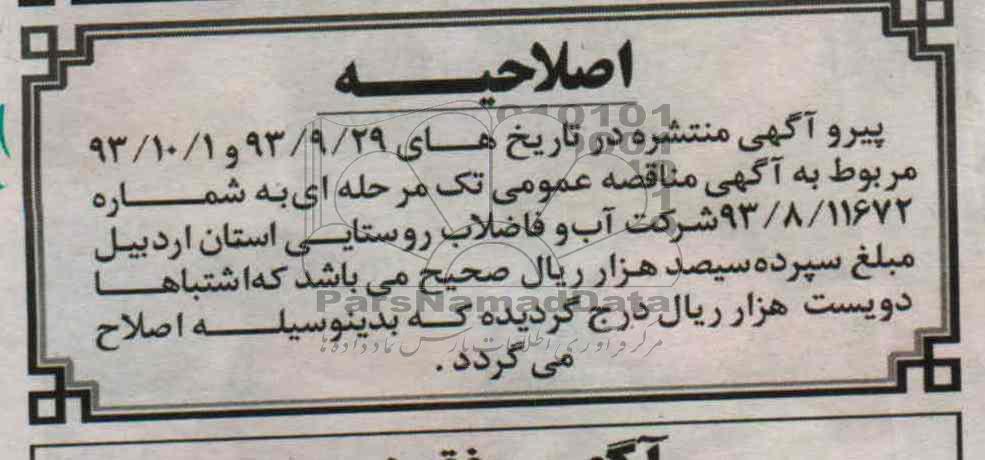 اصلاحیه
پیرو آگهی منتشره در تاریخ های ۹۳/۹/۲۹ و ۹۳/۱۰/۱
مربوط به آگهی مناقصه عمومی تک مرحله ای به شماره
۹۳/۸/۱۱۶۷۲ شرکت آب و فاضلاب روستایی استان اردبیل
مبلغ سپرده سیصد هزار ریال صحیح می باشد که اشتباها
دویست هزار ریال درج گردیده که بدینوسیله اصلاح
می گردد .
ParsNamadData
مرکز فرآوری اطلاعات پارس نماد داده ها
آگهی